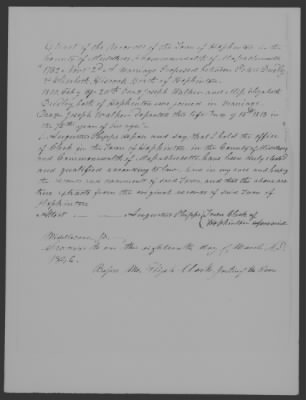 Extract of the Records of the Town of Hopkinton in the
County of Middlesex & Commonwealth of Massachusetts
"1782 Novr 2d A Marriage Proposed between
& Elizabeth both of Hopkinton
20th Capt Joseph Walker and Miss Elizabeth
both of Hopkinton were joined in Marriage
Capt Joseph Walker Departed this life June 1813 in
the year of his age"
I Augustus Phipps depose and say that I hold the office
of Clerk in the Town of Hopkinton in the County of Middlesex
and Commonwealth of Massachusetts have been duly elected
and qualified according to law and in my care and keeping
the records of said Town and that the above are
true extracts from the original records of said Town of
Hopkinton
Attest Augustus Phipps Town Clerk of
Hopkinton aforesaid
Middlesex
Sworn to on this eighteenth day of March A.D.
1846
Before Me Elijah Clark Justice of the Peace